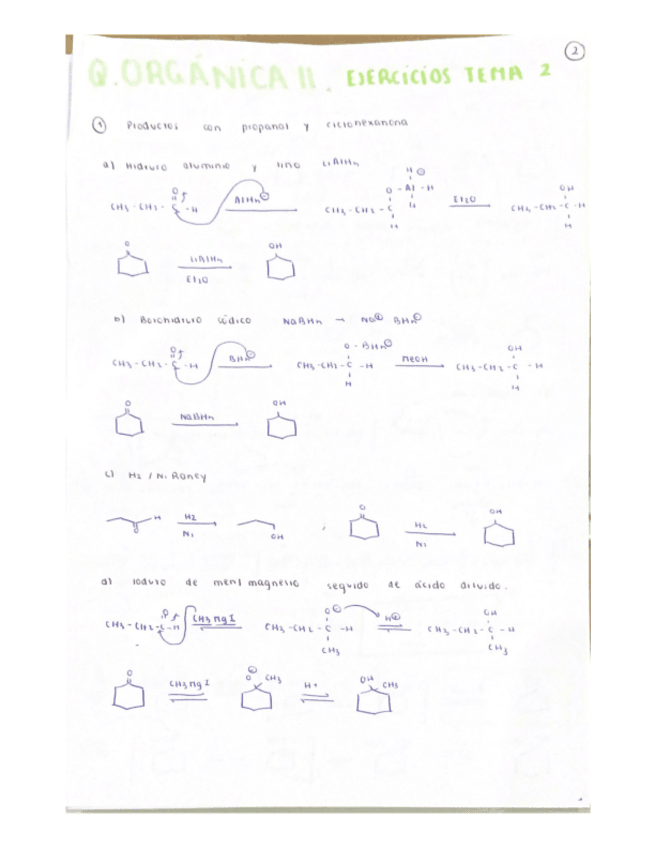 2
Q. ORGÁNICA II. EJERCICIOS TEMA 2
1 Productos con propanal y ciclohexanona
a) Hidruro aluminio y litio LiAlH4
CH3 - CH2 - C - H AlH4⊖ CH3 - CH2 - C O - Al - H H ⊖ H H Et2O CH3 - CH2 - C - H OH H
O LiAlH4 Et2O OH
b) Borohidruro sódico NaBH4 → Na⊕ BH4⊖
CH3 - CH2 - C - H O BH4⊖ CH3 - CH2 - C - H O - BH3⊖ H MeOH CH3 - CH2 - C - H OH H
O NaBH4 OH
c) H2 / Ni Raney
H O H2 Ni OH ; O H2 Ni OH
d) Ioduro de metil magnesio seguido de ácido diluido.
CH3 - CH2 - C - H O CH3MgI CH3 - CH2 - C - H O⊖ CH3 H⊕ CH3 - CH2 - C - H OH CH3
O CH3MgI O⊖ CH3 H+ OH CH3